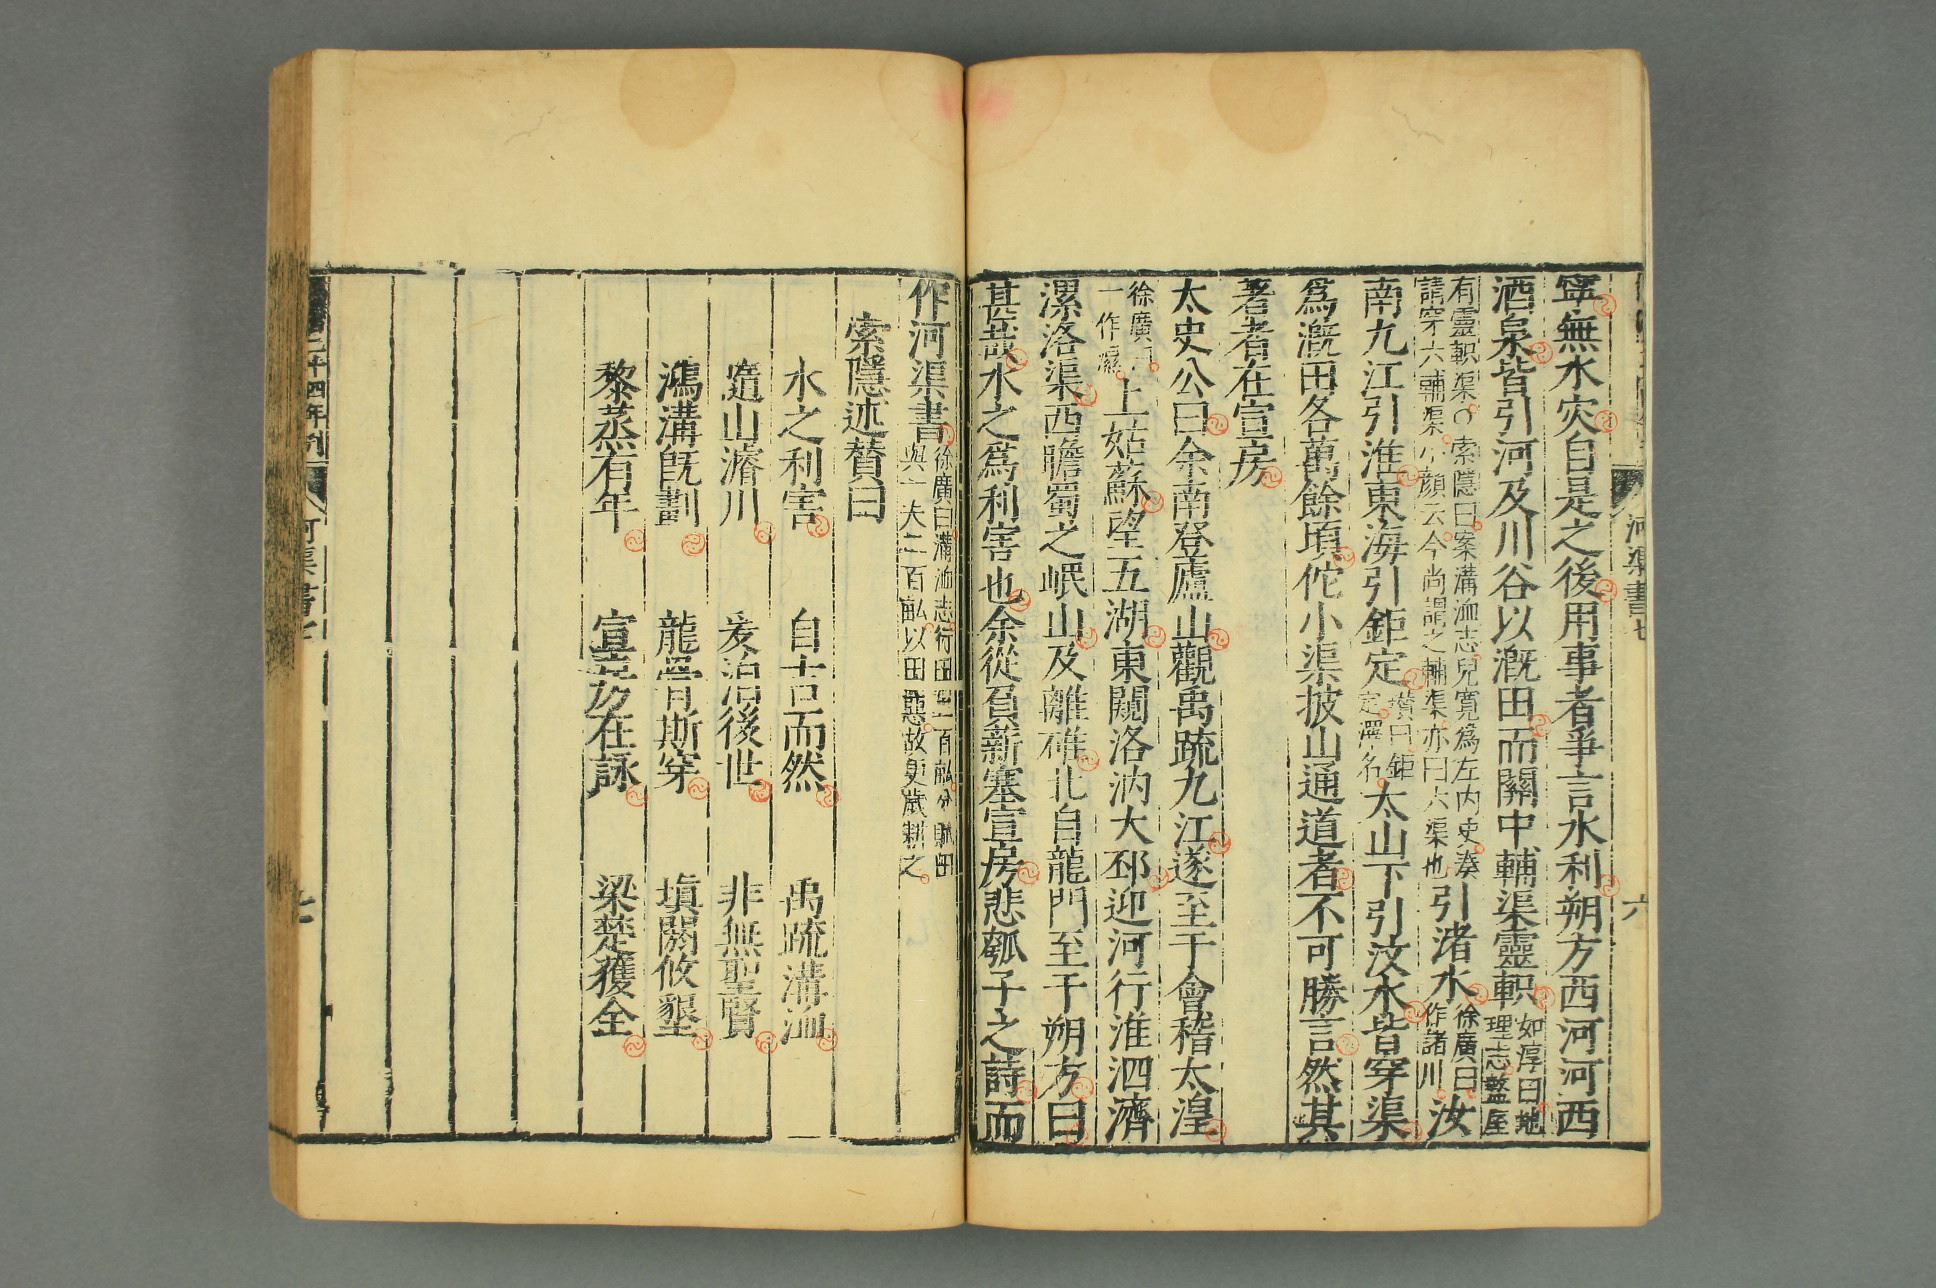 河渠書七
六
寧無水灾自是之後用事者爭言水利朔方西河河西
酒泉皆引河及川谷以漑田而關中輔渠靈軹如淳曰地理志盩厔
有靈軹渠○索隱曰案溝洫志兒寬爲左內史奏請穿六輔渠小顏云今尚謂之輔渠亦曰六渠也引渚水徐廣曰作諸川汝
南九江引淮東海引鉅定瓚曰鉅定澤名太山下引汶水皆穿渠
爲漑田各萬餘頃佗小渠披山通道者不可勝言然其
著者在宣房
太史公曰余南登廬山觀禹疏九江遂至于會稽太湟
徐廣曰一作濕上姑蘇望五湖東闚洛汭大邳迎河行淮泗濟
漯洛渠西瞻蜀之岷山及離碓北自龍門至于朔方曰
甚哉水之爲利害也余從負薪塞宣房悲瓠子之詩而
作河渠書徐廣曰溝洫志行田二百畝分賦田與一夫二百畝以田惡故更歲耕之
索隱述贊曰
水之利害 自古而然 禹疏溝洫
隨山濬川 爰洎後世 非無聖賢
鴻溝旣劃 龍骨斯穿 塡閼攸墾
黎蒸有年 宣房在詠 梁楚獲全
二十四年刊
河渠書七
七